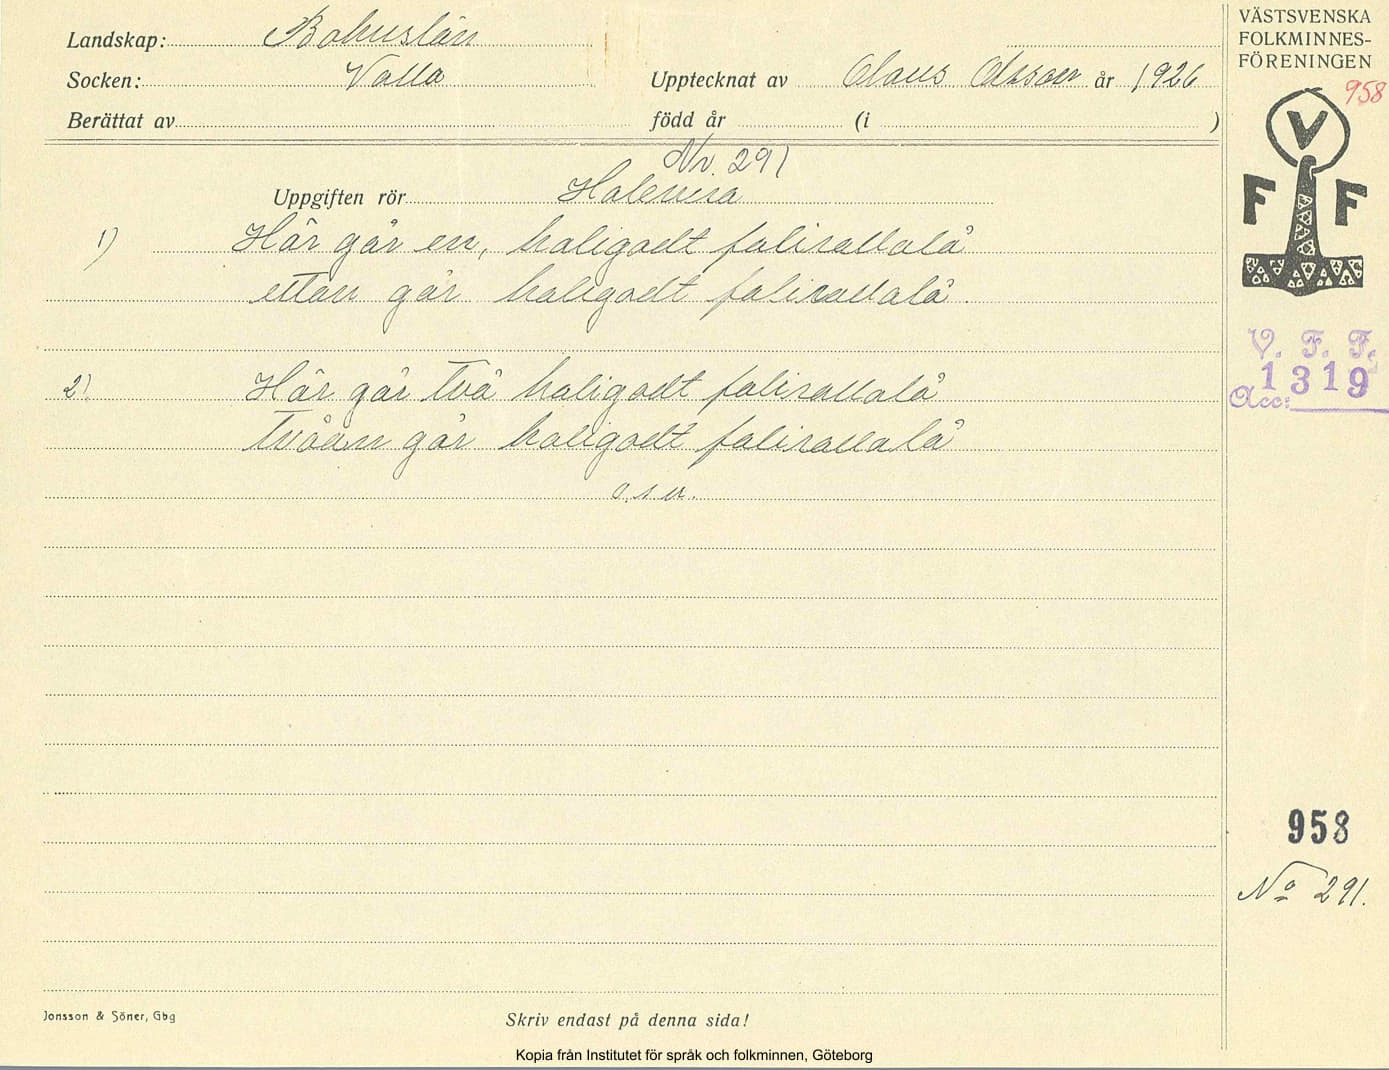 Landskap: Bohuslän
Socken: Valla
Upptecknat av Olaus Olsson år 1926
Berättat av
född år (i )
VÄSTSVENSKA
FOLKMINNES-
FÖRENINGEN
958
V
F F
Nr. 291
Uppgiften rör Halevisa
1) Här går en, haligodt falirallalå
ettan går haligodt falirallalå.
2) Här går två haligodt falirallalå
tvåan går haligodt falirallalå
o.s.v.
V. F. F.
Acc: 1319
958
No 291.
Jonsson & Söner, Gbg
Skriv endast på denna sida!
Kopia från Institutet för språk och folkminnen, Göteborg